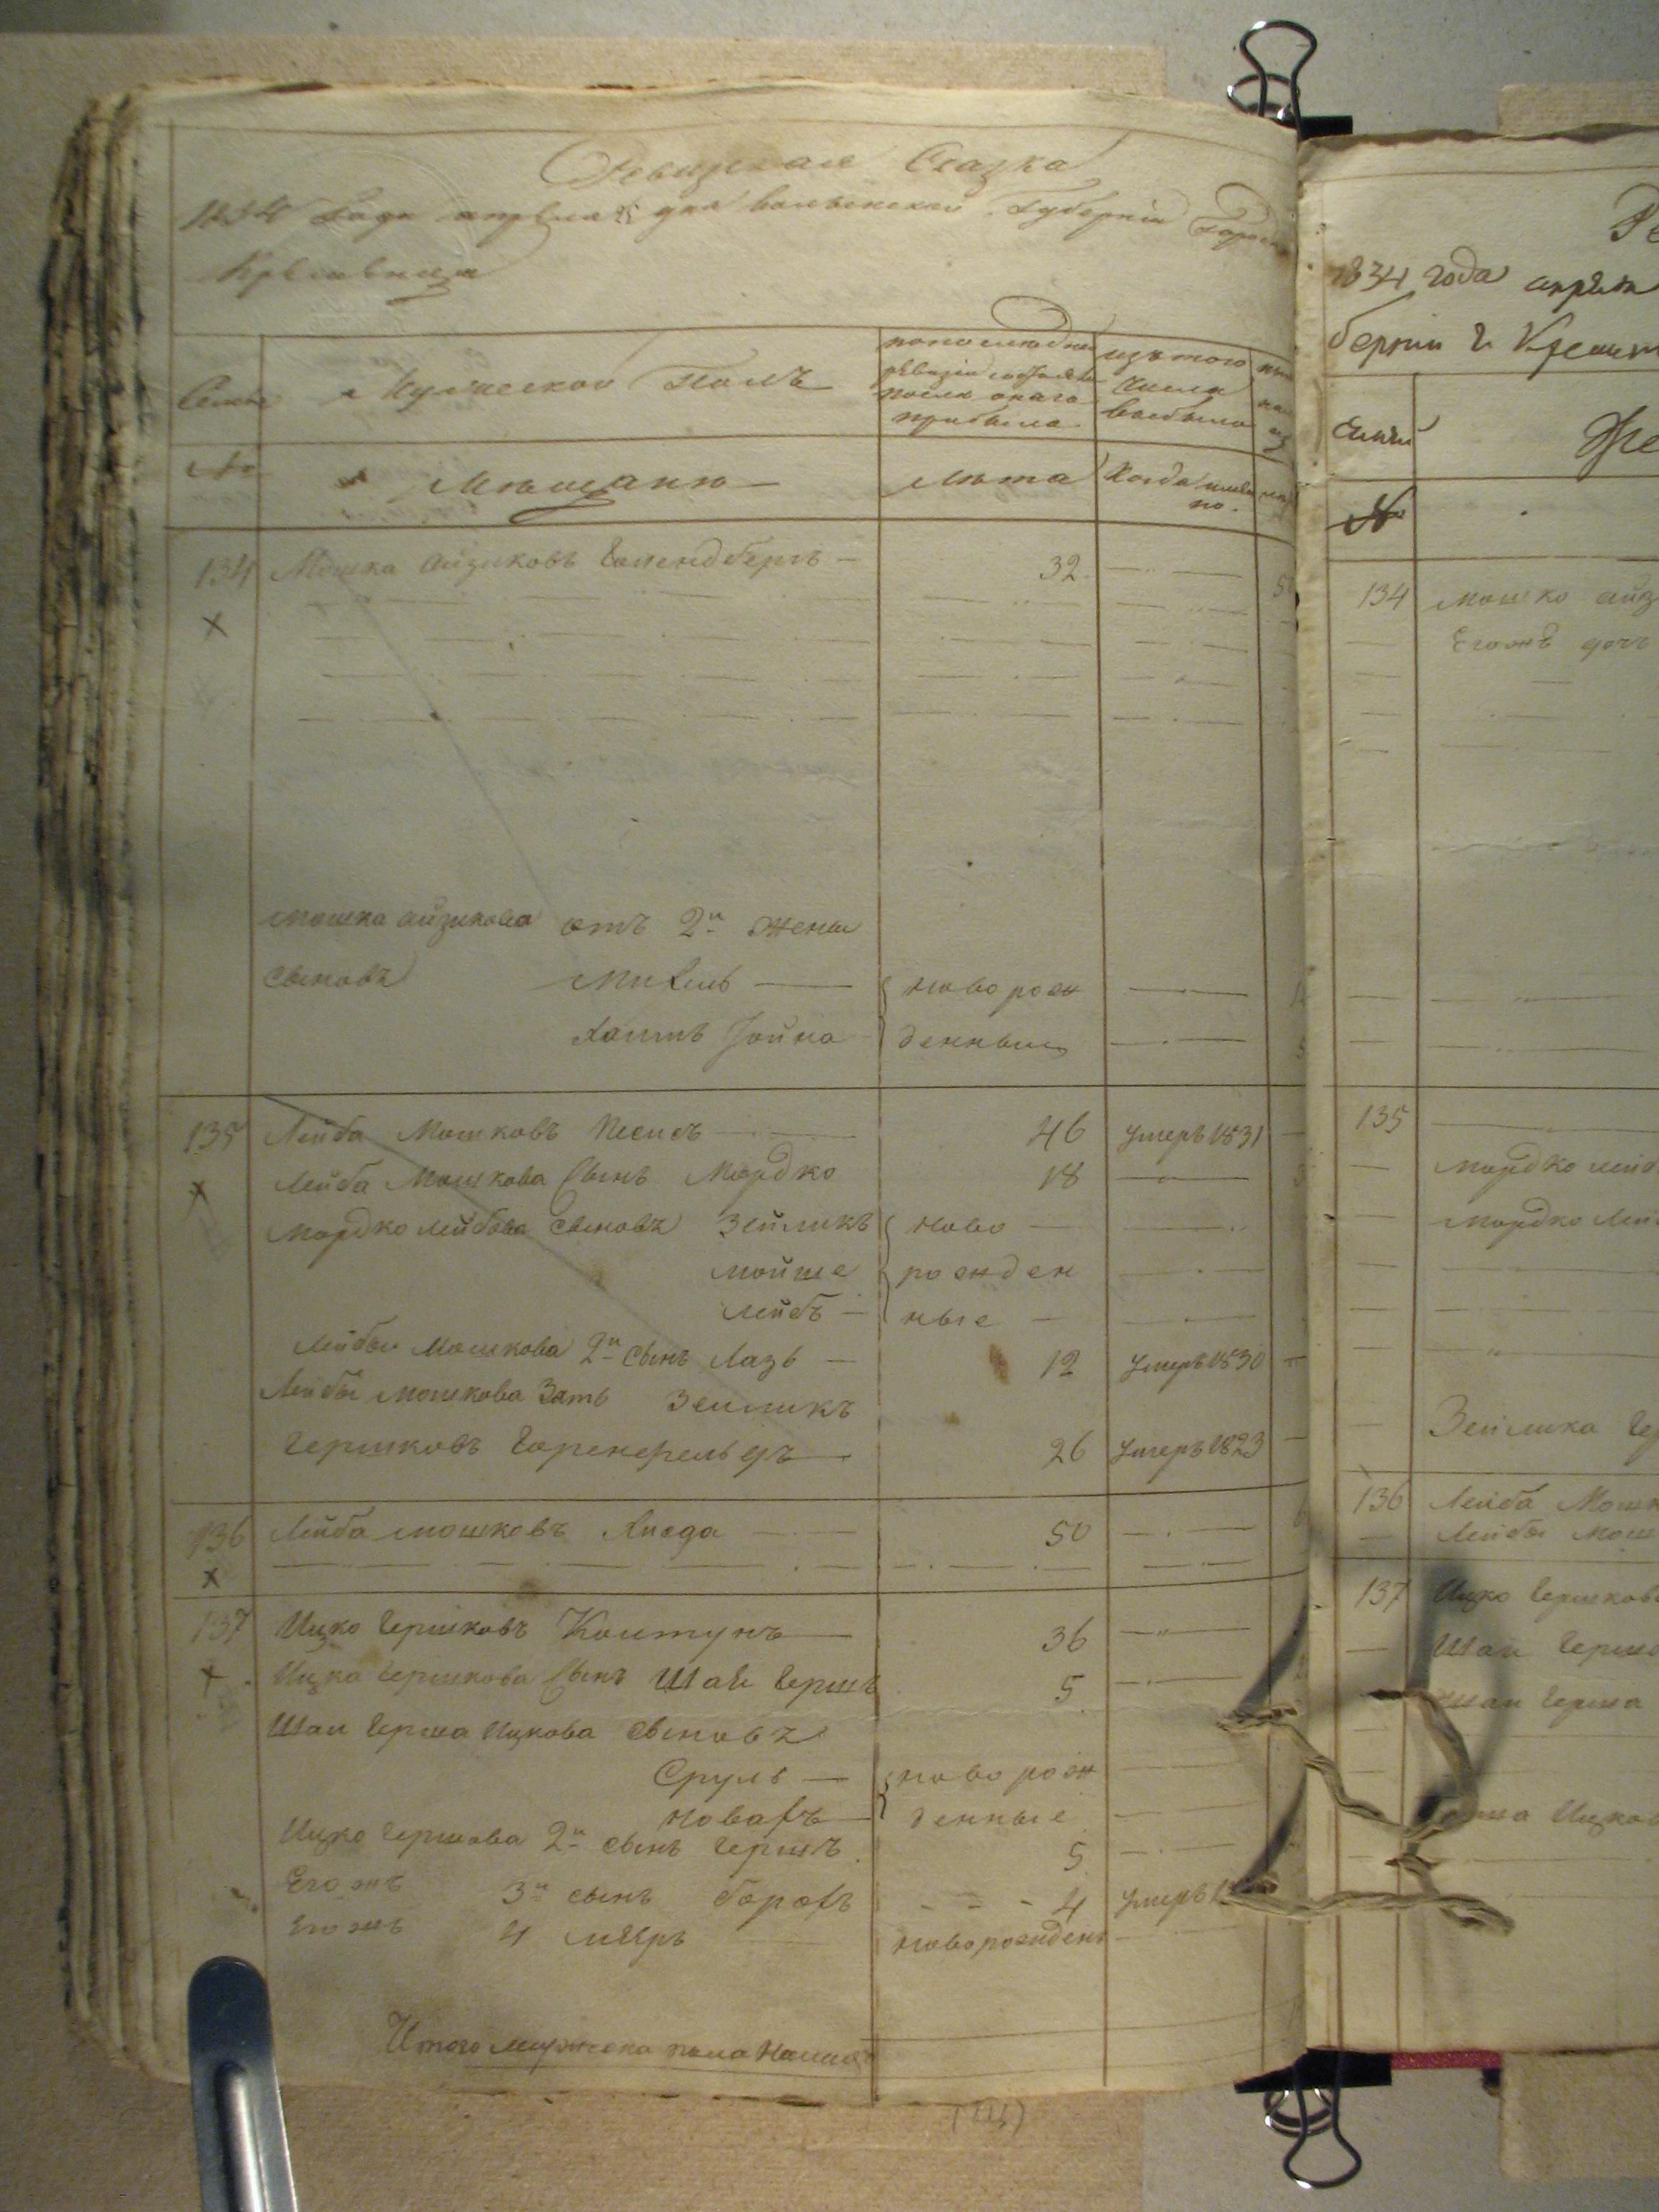 Ревизская Сказка
1834 Года апреля 25 дня Волынской Губернии Города
Кременца
Семьи
Мужеской Полъ
по последней ревизии состояло и после онаго прибыло
изъ того числа выбыло
№
Мещане
лета
Когда именно
134 Мошка Айзиковъ 32
Мошка Айзикова отъ 2й жены
сыновъ Михель новорож
Хаимъ Іойна денныи
135 Лейба Мошковъ 46 умеръ 1831
Лейба Мошкова Сынъ Мордко 18
Мордко Лейбова сыновъ Зейликъ ново
Мойше рожден
Лейбъ ные
Лейбы Мошкова 2й сынъ Лазь 12 умеръ 1830
Лейбы Мошкова Зять Зейликъ
Гершковъ Горенфельдъ 26 умеръ 1823
136 Лейба Мошковъ 50
137 Ицко Гершковъ Колтунъ 36
Ицка Гершкова Сынъ Шая Гершъ 5
Шаи Герша Ицкова сыновъ
Сруль новорож
Новахъ денные
Ицко Гершова 2й сынъ Гершъ 5
Его жъ 3й сынъ Борохъ 4 умеръ
Его жъ 4 Мееръ новорожден
Итого мужеска пола
1834 года апреля
бернии г. Кремен
Семьи
Же
№
134 Мошко Айз
Его жъ дочь
135
Мордко Лейб
Мордко Лей
Зейлика Ге
136 Лейба Мошк
Лейбы Мош
137 Ицко Гершков
Шаи Герш
Шаи Герша
Ицков